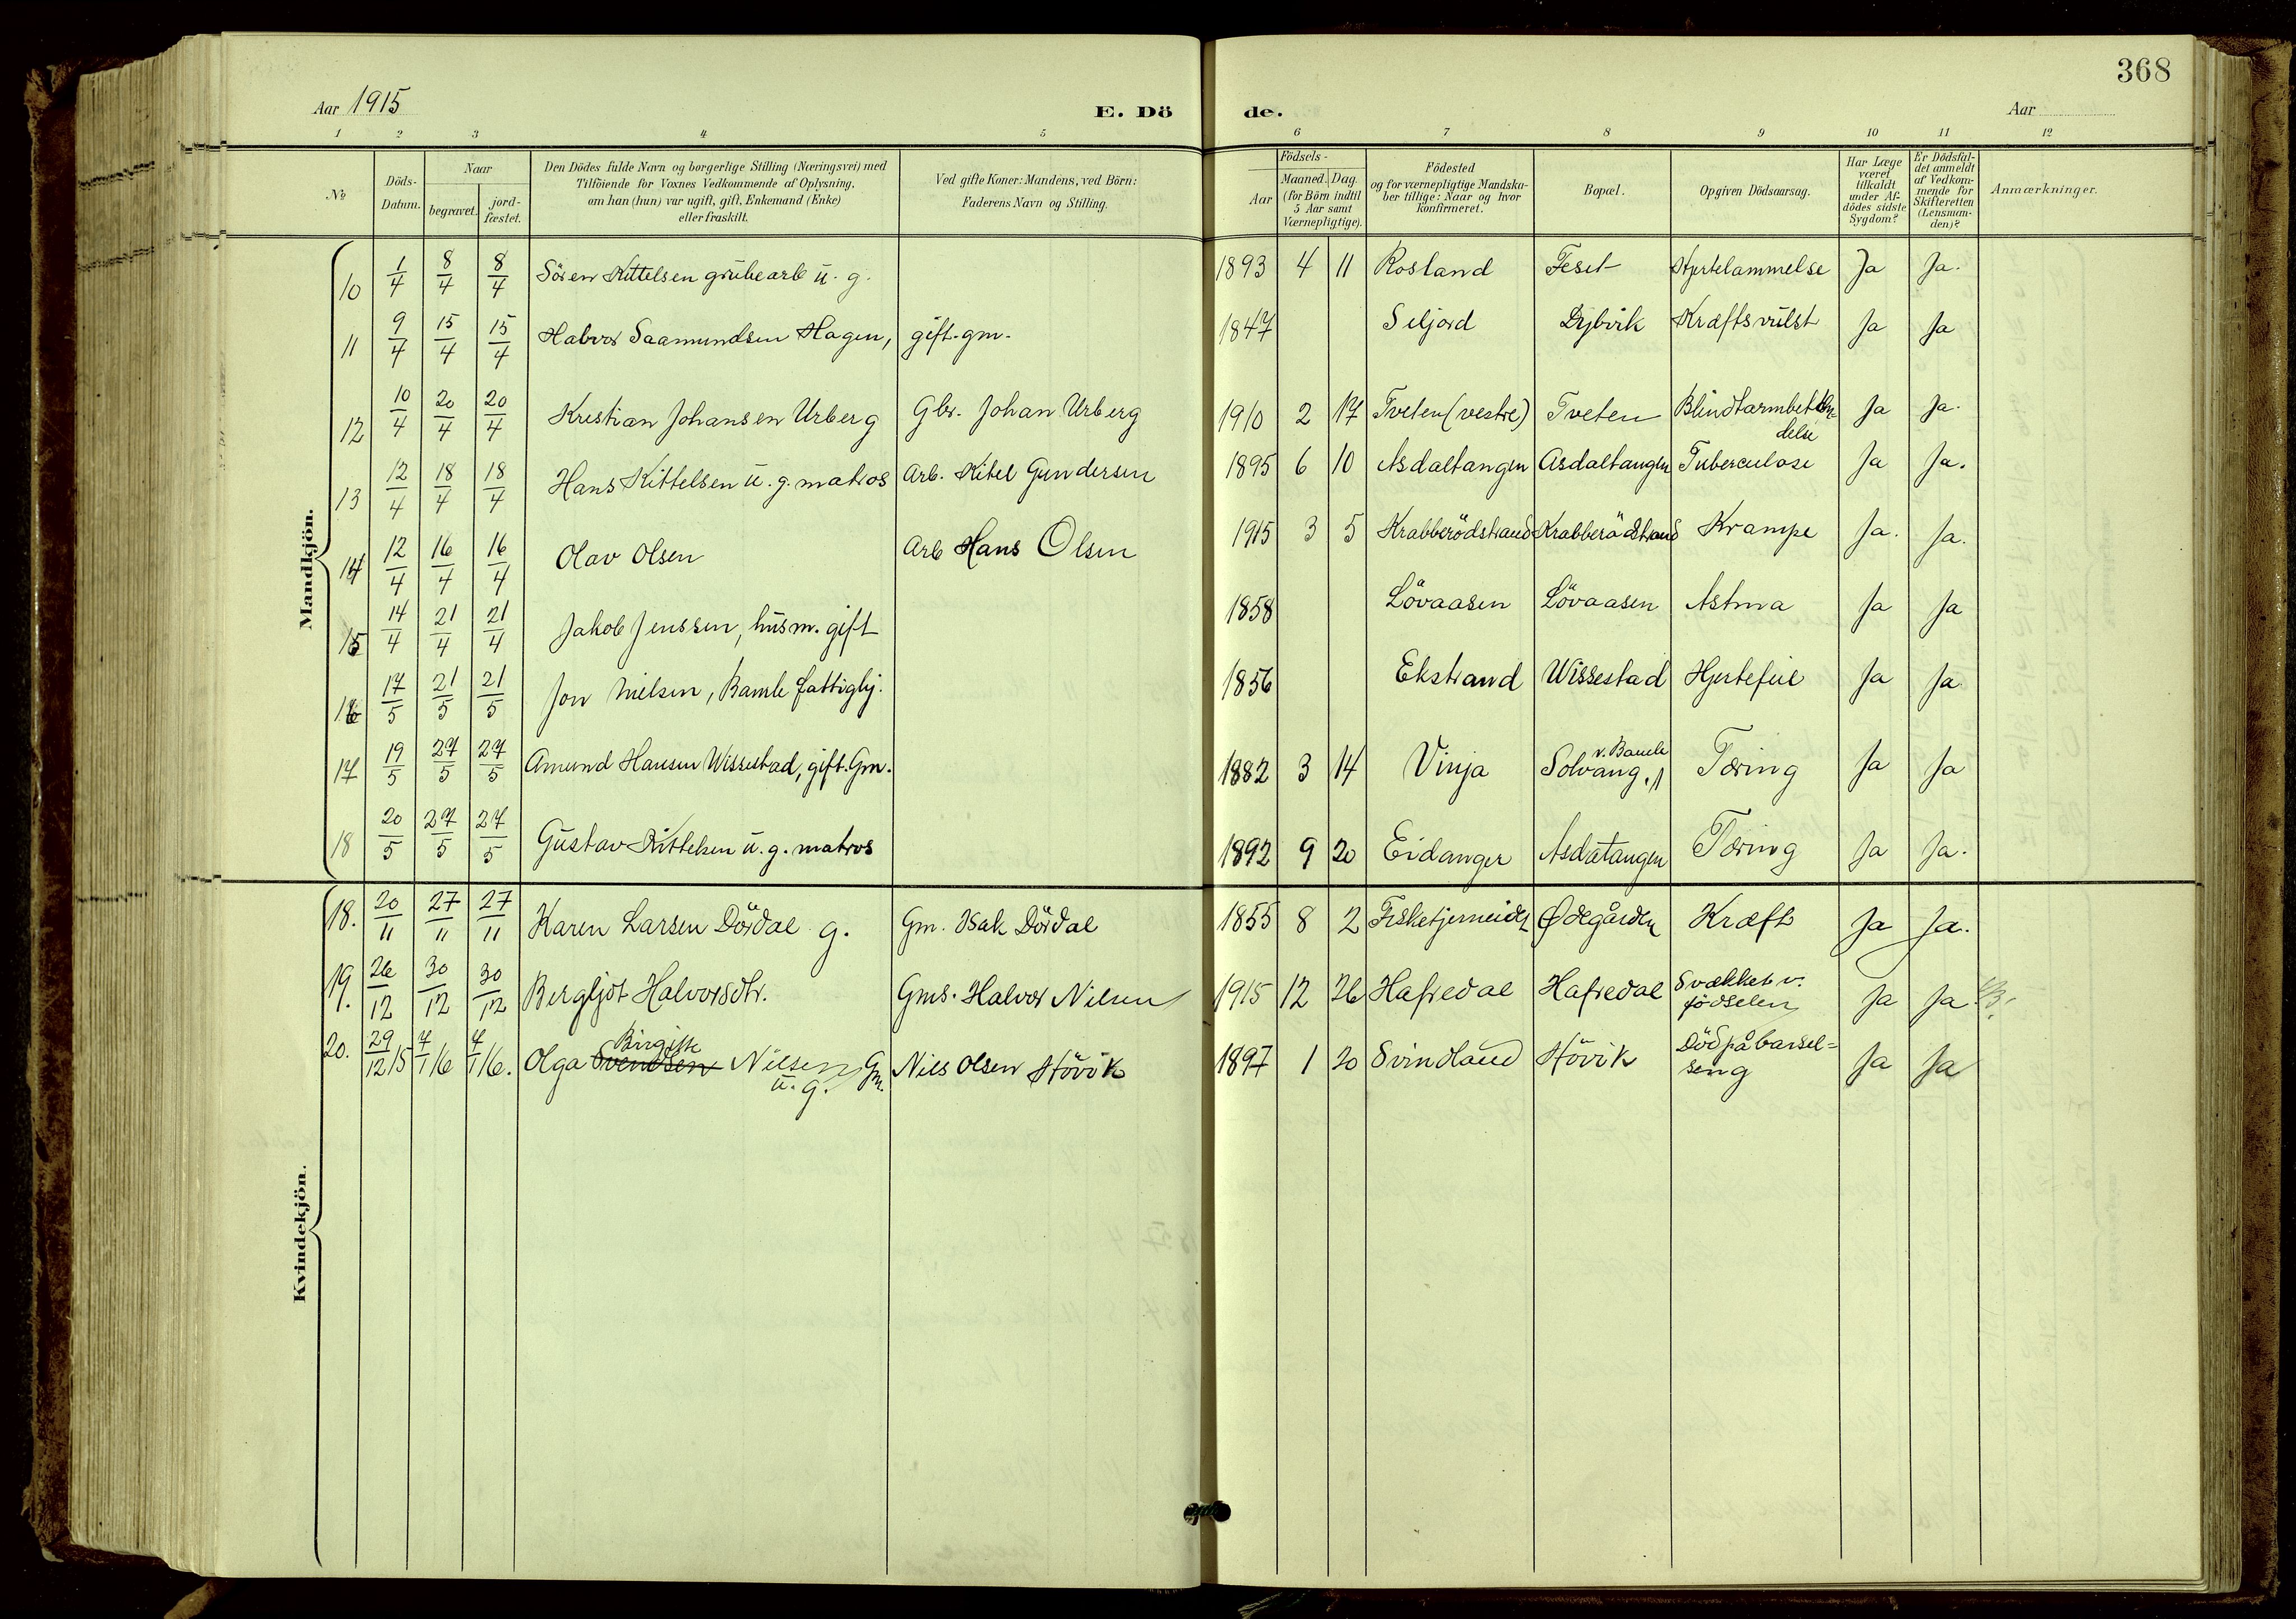 368
Aar 1915
E. Dö
de.
Aar
1 2 3 4 5 6 7 8 9 10 11 12
No
Döds-Datum.
Naar
begravet.
jord-fæstet.
Den Dödes fulde Navn og borgerlige Stilling (Næringsvei) med
Tilföiende for Voxnes Vedkommende af Oplysning,
om han (hun) var ugift, gift, Enkemand (Enke)
eller fraskilt.
Ved gifte Koner: Mandens, ved Börn:
Faderens Navn og Stilling.
Födsels-
Aar
Maaned. Dag.
(for Börn indtil
5 Aar samt
Værnepligtige).
Födested
og for værnepligtige Mandska-
ber tillige: Naar og hvor
konfirmeret.
Bopæl.
Opgiven Dödsaarsag.
Har Læge
været
tilkaldt
under Af-
dödes sidste
Sygdom?
Er Dödsfal-
det anmeldt
af Vedkom-
mende for
Skifteretten
(Lensman-
den)?
Anmærkninger.
Mandkjön.
10 1/4 8/4 8/4 Sören Kittelsen grubearb u. g. 1893 4 11 Rosland Feset Hjertelammelse Ja Ja.
11 9/4 15/4 15/4 Halvor Saamundsen Hagen, gift. gm. 1847 Seljord Dybvik Kræftsvulst Ja Ja
12 10/4 20/4 20/4 Kristian Johansen Urberg Gbr. Johan Urberg 1910 2 17 Tveten (vestre) Tveten Blindtarmbetæn-
delse Ja Ja.
13 12/4 18/4 18/4 Hans Kittelsen u. g. matros Arb. Kitel Gundersen 1895 6 10 Asdaltangen Asdaltangen Tuberculose Ja Ja.
14 12/4 16/4 16/4 Olav Olsen Arb Hans Olsen 1915 3 5 Krabberödstrand Krabberödstrand Krampe Ja. Ja.
15 14/4 21/4 21/4 Jakob Jenssen, husm. gift 1858 Lövaasen Lövaasen Astma Ja Ja
16 17/5 21/5 21/5 Jon Nielsen, Bamle fattighj. 1856 Ekstrand Wissestad Hjertefeil Ja Ja
17 19/5 27/5 27/5 Amund Hansen Wissestad, gift. Gm. 1882 3 14 Vinja Solvang, v. Bamle Tæring Ja Ja
18 20/5 27/5 27/5 Gustav Kittelsen u. g. matros 1892 9 20 Eidanger Asdatangen Tæring Ja Ja.
Kvindekjön.
18. 20/11 27/11 27/11 Karen Larsen Dördal g. Gm. Isak Dördal 1855 8 2 Ødegården Kræft Ja Ja.
19. 26/12 30/12 30/12 Bergljot Halvorsdtr. Gms. Halvor Nilsen 1915 12 26 Hafredal Hafredal Svækket v.
födselen Ja Ja
20. 29/12 15 7/1 16 7/1 16. Olga Svendsen Birgitte Nilsen
u. g. Gm. Nils Olsen Hövik 1897 1 20 Svindland Hövik Död på barsel=
seng Ja Ja